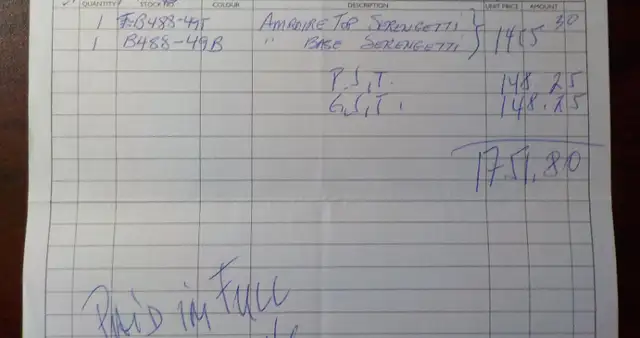 QUANTITY STOCK NO COLOUR DESCRIPTION UNIT PRICE AMOUNT
1 F-B488-49T Armoire Top Serengetti
1 B488-49B " Base Serengetti } 1455 30
P.S.T. 148.25
G.S.T. 148.25
1751.80
Paid in Full